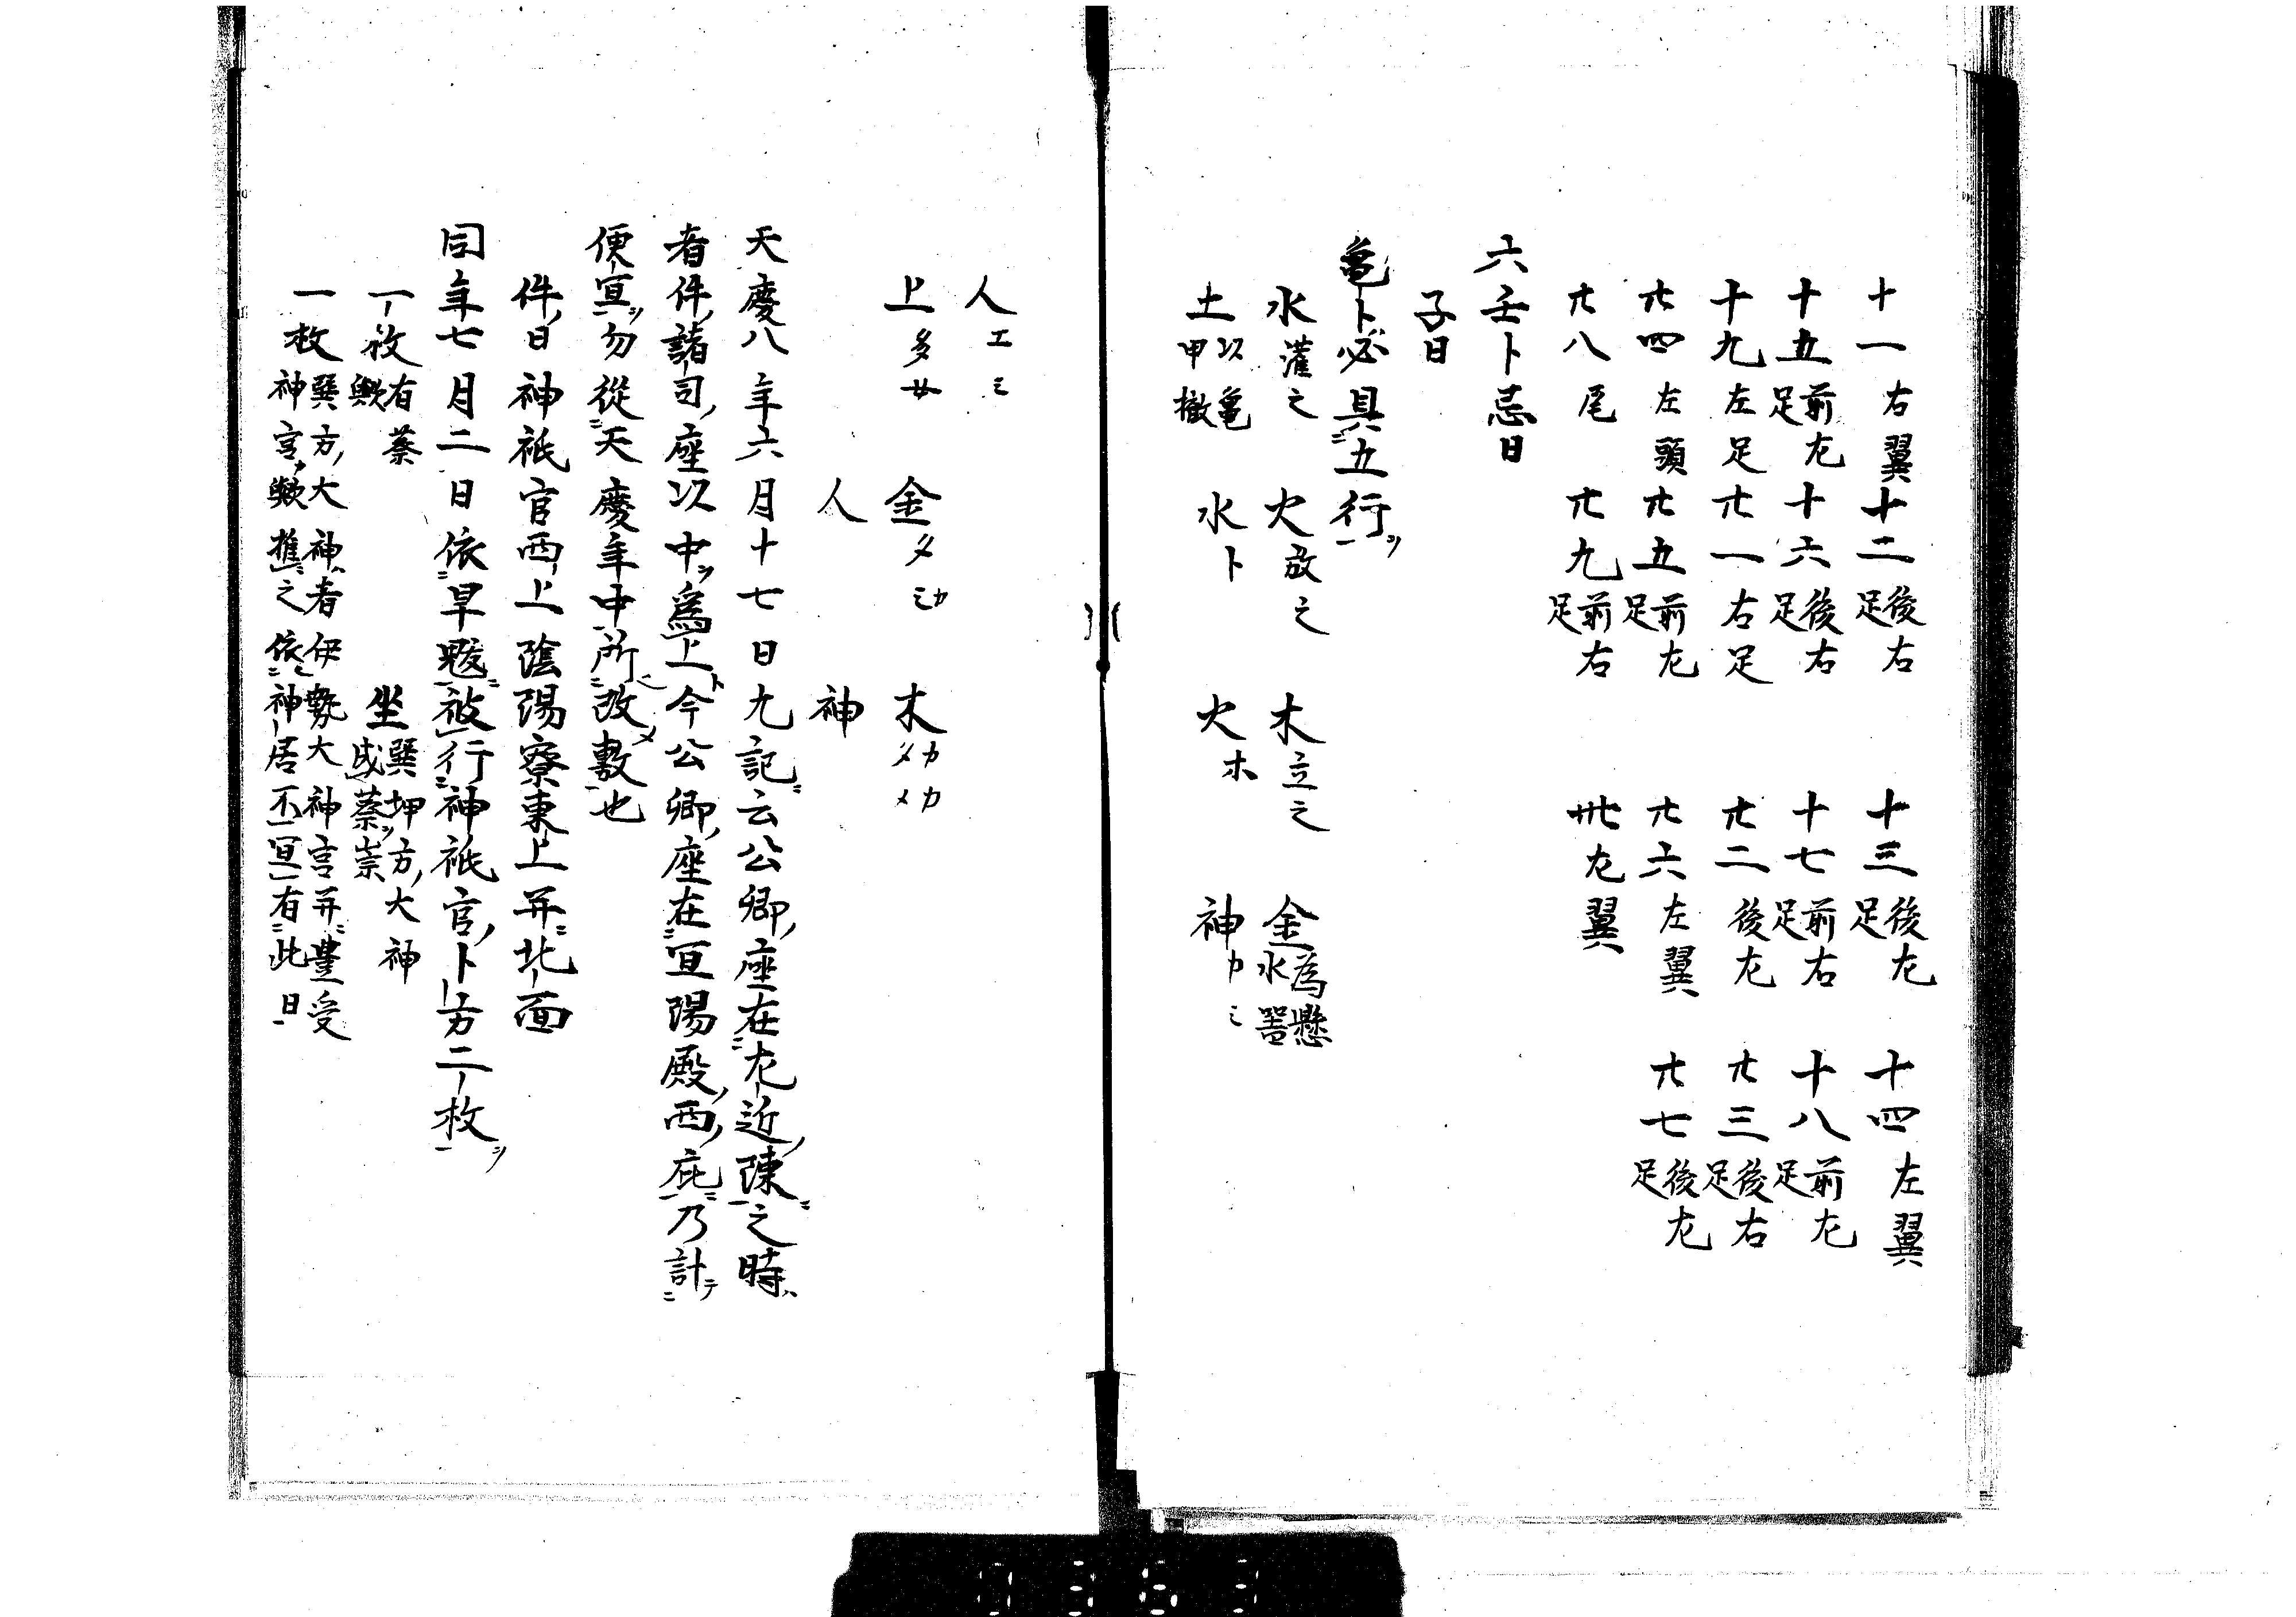 十一右翼　十二後右足　十三後左足　十四左翼
十五前左足　十六後右足　十七前右足　十八前左足
十九左足　廿一右足　廿二後左　廿三後右足
廿四左頭　廿五前左足　廿六左翼　廿七後左足
廿八尾　廿九前右足　卅左翼
六壬卜忌日
子日
亀卜必具五行
水灌之　火放之　木立之　金為懸水器
土以亀甲撤　水ト　火ホ　神カミ
人エミ
上　金　木
人　神
天慶八年六月十七日九記云公卿座在左近陳之時
者件諸司座以中為上今公卿座在宜陽殿西庇乃計
便宜勿從天慶年中所改敷也
件日神祇官西上陰陽寮東上并北面
同年七月二日依旱魃被行神祇官卜方二枚
一枚有祟歟　坐巽坤方大神成祟
一枚巽方大神者伊勢大神宮并豊受
神宮歟推之依神居不宜有此日